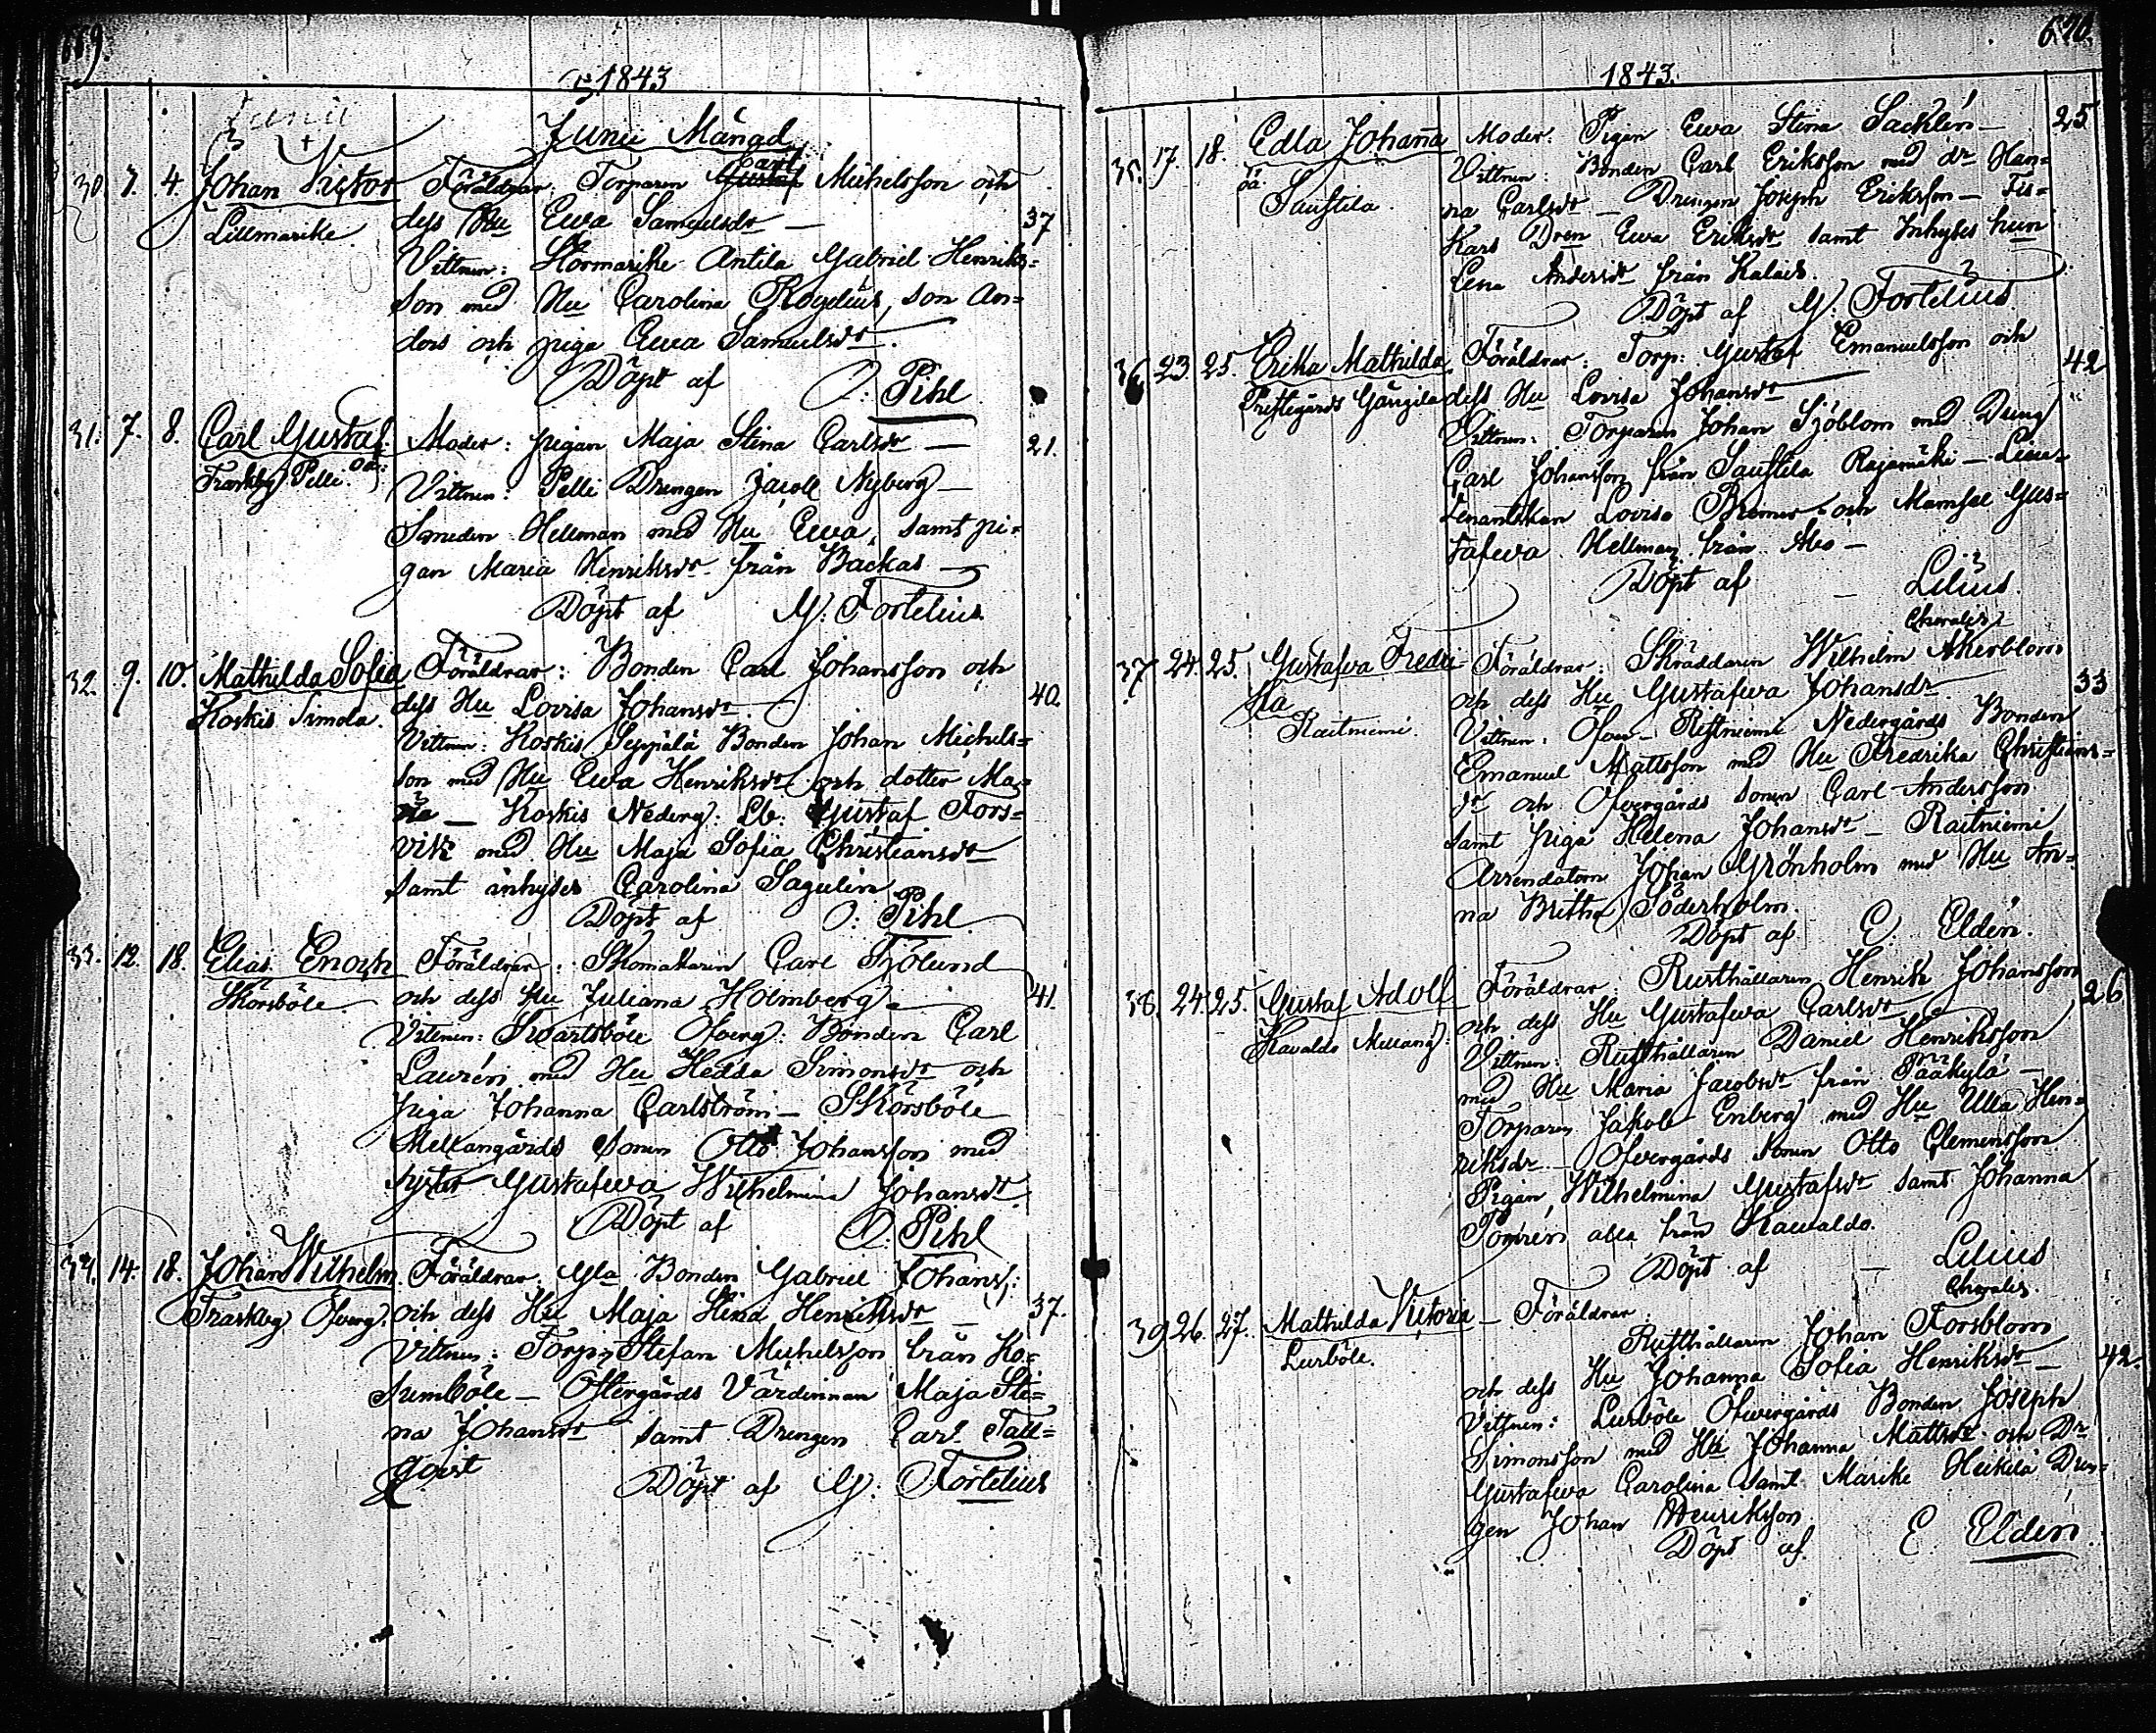 669.
1843
Junii
Junii Månad
30. 3. 4. Johan Victor Föräldrar: Torparen Gustaf Carl Michelsson och
Lillmarike. dess Hu Ewa Samuelsdr — 37
Vittnen: Stormarike Antila Gabriel Henriks=
son med Hu Carolina Rogelius, son An=
ders och piga Ewa Samuelsdr.
Döpt af O: Pihl
31. 7. 8. Carl Gustaf Moder: pigan Maja Stina Carlsdr — 21.
Fraskby Pelli. oä: Vittnen: Pelli Drengen Jacob Nyberg —
Smeden Hellman med Hu Ewa, samt pi=
gan Maria Henriksdr från Backas —
Döpt af G: Fortelius.
32. 9. 10. Mathilda Sofia Föräldrar: Bonden Carl Johansson och
Koskis Simola. dess Hu Lovisa Johansdr. 40.
Vittnen: Koskis Seppälä Bonden Johan Michels=
son med Hu Ewa Henriksdr och dotter Ma=
ria — Koskis Nederg: Lb: Gustaf Fors=
vik med Hu Maja Sofia Christiansdr
samt inhyses Carolina Sagulin.
Döpt af O: Pihl.
33. 12. 18. Elias Enoch Föräldrar: Skomakaren Carl Sjölund
Skorsböle. och dess Hu Juliana Holmberg. 41.
Vittnen: Svartsböle Öfverg: Bonden Carl
Laurén med Hu Hedda Simonsdr och
piga Johanna Carlström — Skörsböle
Mellangårds Sonen Otto Johansson med
syster Gustafwa Wilhelmina Johansdr
Döpt af O. Pihl
34. 14. 18. Johan Wilhelm. Föräldrar: Gla Bonden Gabriel Johanss:
Fraskby Öfverg. och dess Hu Maja Stina Henriksdr — 37.
Vittnen: Torp: Stefan Michelsson från Ko=
sumböle — Östergårds Värdinnan Maja Sti=
na Johansdr samt Drengen Carl Tall=
qvist Döpt af G: Fortelius
670.
1843.
35. 17. 18. Edla Johanna Moder: Pigan Ewa Stina Sacklén — 25
oä. Vittnen: Bonden Carl Eriksson med dr Han=
Saustila. na Carlsdr — Drengen Joseph Eriksson — Fis=
kars Dren Ewa Eriksdr samt Inhyses hun
Lena Andersdr från Kalais.
Döpt af G. Fortelius
36 23. 25. Erika Mathilda Föräldrar: Torp: Gustaf Emanuelsson och 42
Prestegårds Gängila dess Hu Lovisa Johansdr
Vittnen: Torparen Johan Sjöblom med Dreng
Carl Johansson från Saustila Rajamäki — Lieu=
tenantskan Lovisa Bremer och Mamsel Gus=
tafwa Hellman från Åbo —
Döpt af — Lilius.
Chorales
37 24. 25. Gustafwa Fredri= Föräldrar: Skräddaren Wilhelm Åkerblom
ka och dess Hu Gustafwa Johansdr. 33
Raitniemi. Vittnen: Öfver-Ristniemi Nedergårds Bonden
Emanuel Mattsson med Hu Fredrika Christians=
dr och Öfvergårds sonen Carl Andersson
samt piga Helena Johansdr — Raitniemi
Arrendatorn Johan Grönholm med Hu An=
na Britha Söderholm.
Döpt af E. Eldén.
38. 24. 25. Gustaf Adolf Föräldrar: Rusthållaren Henrik Johansson
Kavaldo Mellang: och dess Hu Gustafwa Carlsdr 26
Vittnen: Rusthållaren Daniel Henriksson
med Hu Maria Jacobsdr från Pääkylä —
Torparen Jakob Enberg med Hu Ulla Hen=
riksdr — Öfvergårds Sonen Otto Clemensson
Pigan Wilhelmina Gustafsdr samt Johanna
Tomrén alla från Kawaldo.
Döpt af — Lilius
Chorales.
39 26. 27. Mathilda Victoria — Föräldrar:
Lurböle. Rusthållaren Johan Forsblom
och dess Hu Johanna Sofia Henriksdr — 42.
Vittnen: Lurböle Öfvergårds Bonden Joseph
Simonsson med Hu Johanna Mattsdr och Dr
Gustafwa Carolina samt Marike Heikilä Dren=
gen Johan Henriksson.
Döpt af E Eldén.